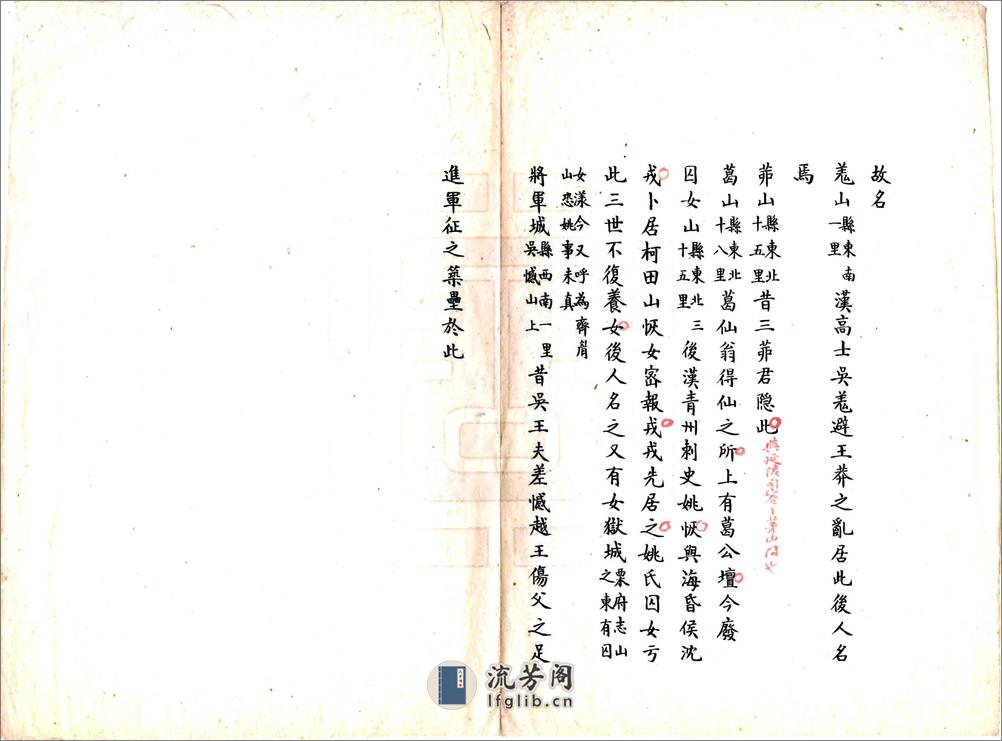 故名
羗山縣東南一里漢高士吳羗避王莽之亂居此後人名
焉
茆山縣東北十五里昔三茆君隐此
葛山縣東北十八里葛仙翁得仙之所上有葛公壇今廢
囚女山縣東北三十五里後漢青州刺史姚恢與海昏侯沈
戎卜居柯田山恢女密報戎戎先居之姚氏囚女亐
此三世不復養女後人名之又有女獄城栗府志山之東有囚
女漾今又呼為齊眉山恐姚事未真
將軍城縣西南一里吳憾山上昔吳王夫差憾越王傷父之足
進軍征之築壘於此
流芳阁
lfglib.cn